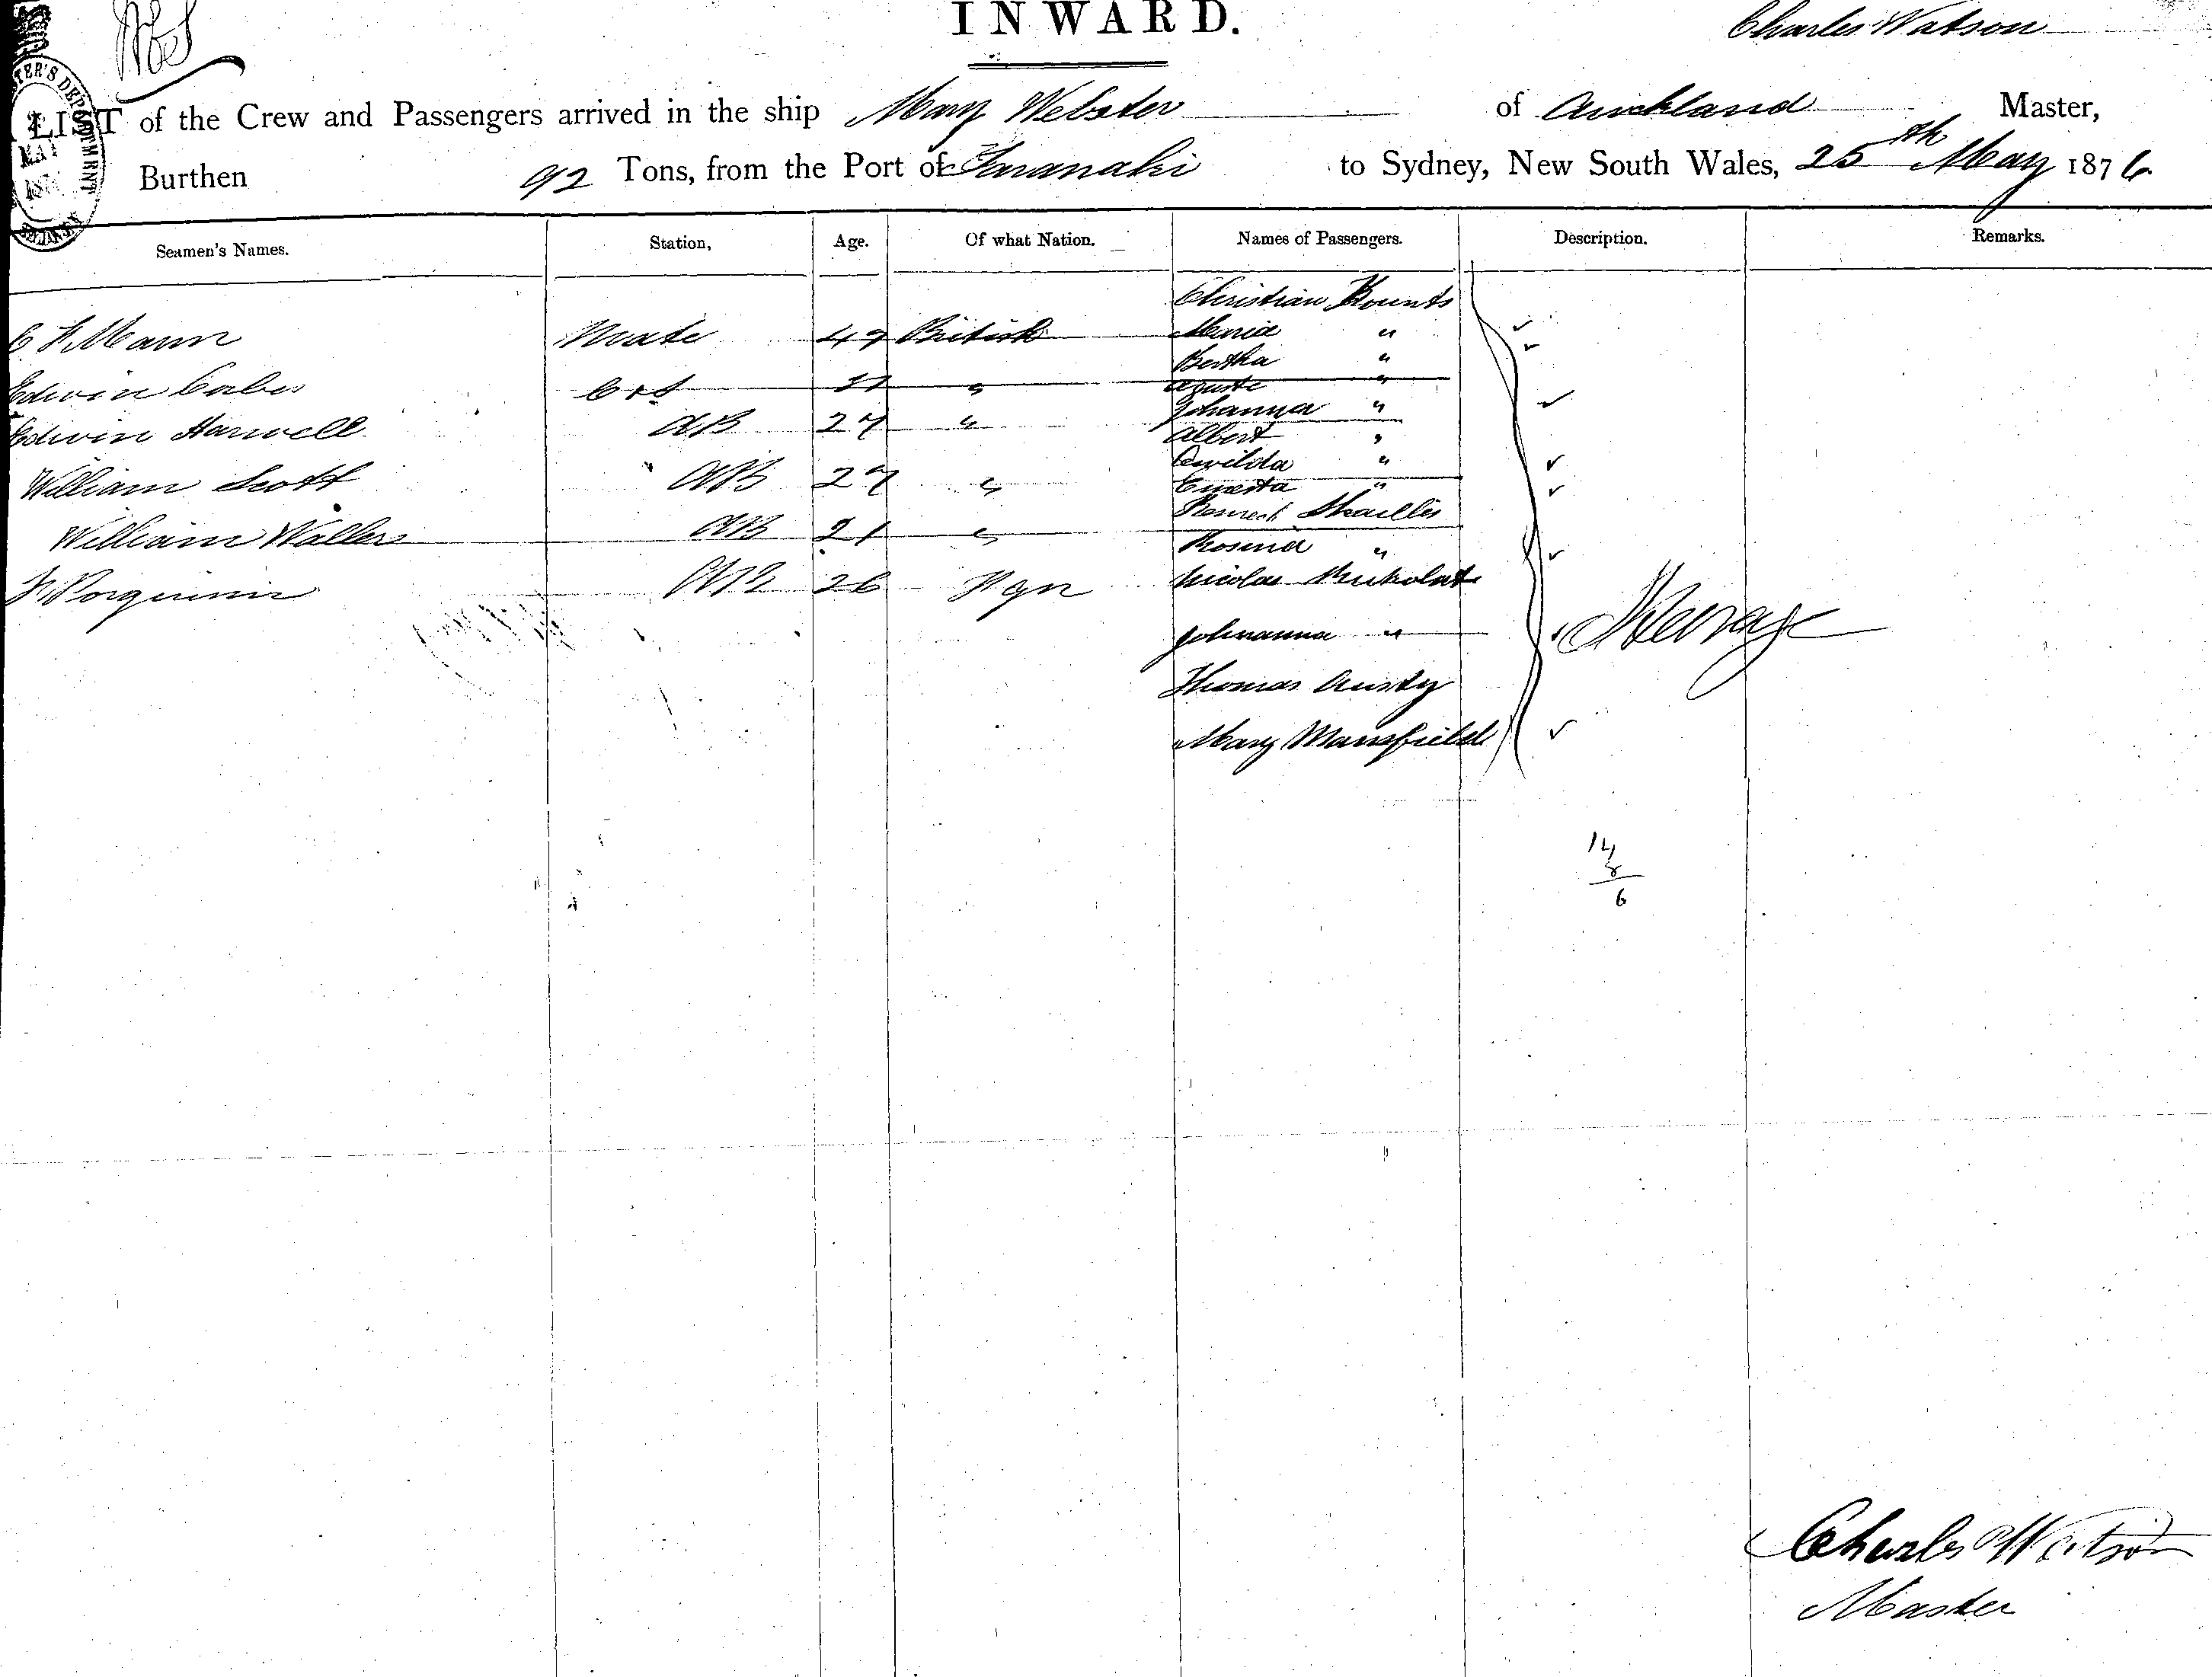 INWARD.
Charles Watson
LIST of the Crew and Passengers arrived in the ship Mary Webster of Auckland Master,
Burthen 92 Tons, from the Port of Taranaki to Sydney, New South Wales, 25th May 1876.
Seamen's Names. Station, Age. Of what Nation. Names of Passengers. Description. Remarks.
Christian Kounts
Mann Mate 47 British Maria "
Bertha "
Edwin "
Johanna "
Edwin Harwell AB 27 "
Albert "
William Scott AB 27 " "
William Waller AB 21 "
Rosina "
AB 26 Fgn Nicolas
Johnanna "
Steerage
Thomas
Mary Mansfield
14
8
6
Charles Watson
Master